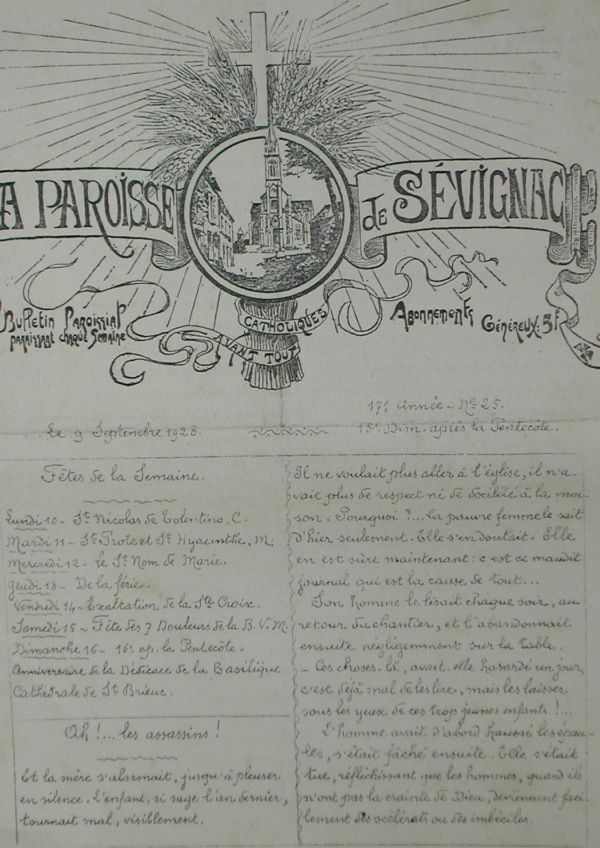 A PAROISSE de SÉVIGNAC
Bulletin Paroissial
paraissant chaque Semaine
CATHOLIQUES
AVANT TOUT
Abonnements
Généreux: 5F
Le 9 Septembre 1928.
17e Année - No 25.
15e Dim. après la Pentecôte.
Fêtes de la Semaine.
Lundi 10 - St Nicolas de Tolentino, C.
Mardi 11 - St Prote et St Hyacinthe, M.
Mercredi 12 - Le St Nom de Marie.
Jeudi 13 - De la férie.
Vendredi 14 - Exaltation de la Ste Croix.
Samedi 15 - Fête des 7 Douleurs de la B. V. M.
Dimanche 16 - 16e ap. la Pentecôte.
Anniversaire de la Dédicace de la Basilique
Cathédrale de St Brieuc.
Ah !... les assassins !
Et la mère s'alarmait, jusqu'à pleurer
en silence. L'enfant, si sage l'an dernier,
tournait mal, visiblement.
Il ne voulait plus aller à l'église, il n'a-
vait plus de respect ni de docilité à la mai-
son. Pourquoi ?... La pauvre femme le sait
d'hier seulement. Elle s'en doutait. Elle
en est sûre maintenant : c'est ce maudit
journal qui est la cause de tout...
Son homme le lisait chaque soir, au
retour du chantier, et l'abandonnait
ensuite négligemment sur la table.
- Ces choses-là, avait-elle hasardé un jour,
c'est déjà mal de les lire, mais les laisser
sous les yeux de ces trop jeunes enfants !...
L'homme avait d'abord haussé les épau-
les, s'était fâché ensuite. Elle s'était
tue, réfléchissant que les hommes, quand ils
n'ont pas la crainte de Dieu, deviennent faci-
lement des scélérats ou des imbéciles.